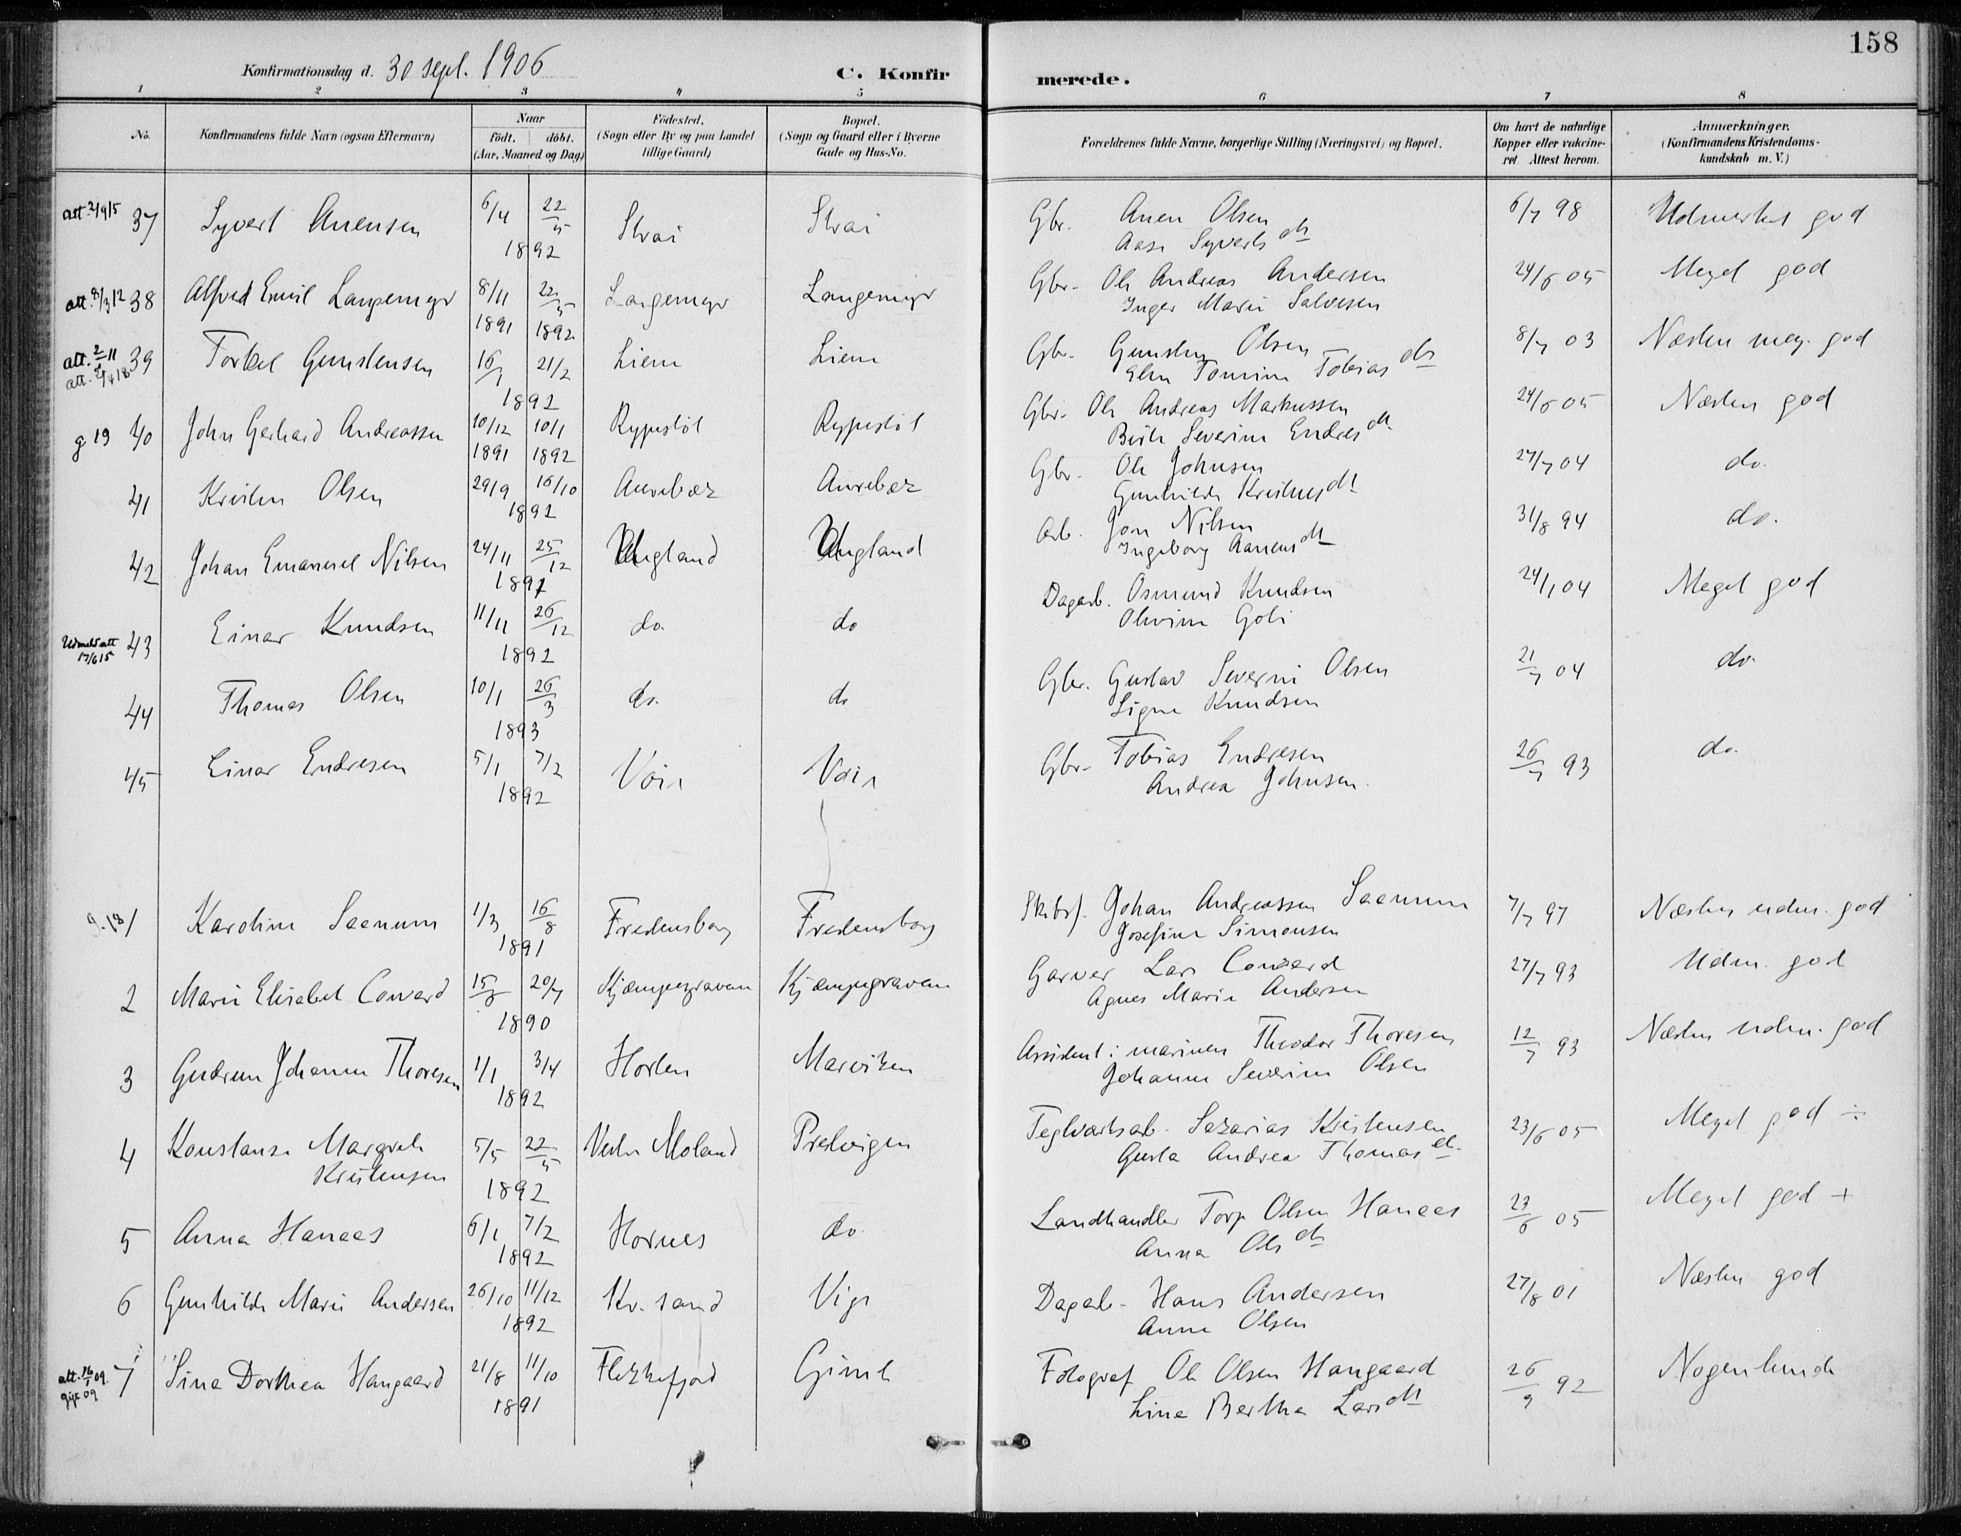 158
Konfirmationsdag d. 30 sept. 1906
C. Konfir merede.
1 2 3 4 5 6 7 8
No.
Konfirmandens fulde Navn (ogsaa Efternavn)
Naar født. døbt. (Aar, Maaned og Dag)
Fødested. (Sogn eller By og paa Landet tillige Gaard)
Bopæl. (Sogn og Gaard eller i Byerne Gade og Hus-No.
Forældrenes fulde Navne, borgerlige Stilling (Næringsvei) og Bopæl.
Om havt de naturlige Kopper eller vakcineret Attest herom.
Anmerkninger. (Konfirmandens Kristendomskundskab m. V.)
37 Syvert Anensen 6/4 22/5 1892 Strai Strai Gbr. Anen Olsen 6/7 98 Udmerket god
Aase Syverts dt
38 Alfred Emil Langemyr 8/11 1891 22/5 1892 Langemyr Langemyr Gbr. Ole Andreas Andersen 24/6 05 Meget god
Inger Marie Salvesen
39 Torkel Gunstensen 16/1 21/2 1892 Liene Liene Gbr. Gunsten Olsen 8/7 03 Næsten meg. god
Tomine Tobias dt
g 19 40 John Gerhard Andreassen 10/12 1891 10/1 1892 Rypestøl Rypestøl Gbr. Ole Andreas Markussen 24/6 05 Næsten god
Severine Endres dt
41 Kristen Olsen 29/9 16/10 1892 Aurebæk Aurebæk Gbr. Ole Johnsen 27/7 04 do.
Gunhilde Kristens dt
42 Johan Emanuel Nilsen 24/11 25/12 1891 Ugland Ugland Arb. Jon Nilsen 31/8 94 do.
Ingeborg Aanens dt
43 Einar Knudsen 11/11 26/12 1892 do. do Dagarb. Osmund Knudsen 24/1 04 Meget god
Olivine Goli
44 Thomas Olsen 10/1 26/3 1893 do. do Gbr. Gustav Severin Olsen 21/7 04 do.
Signe Knudsen
45 Einar Endresen 5/1 7/2 1892 Voie Voie Gbr. Tobias Endresen 26/7 93 do.
Andrea Johnsen.
g. 13 1 Karoline Saanum 1/3 16/8 1891 Fredensborg Fredensborg Skibsf. Johan Andreassen Saanum 7/7 97 Næsten udm. god
Josefine Simonsen
2 Marie Elisabet Conrard 15/8 20/7 1890 Kjæmpegraven Kjæmpegraven Garver Lars Conrard 27/7 93 Udm. god
Agnes Marie Andersen
3 Gudrun Johanne Thoresen 1/1 3/4 1892 Horten Marviken Assistent i marinen Theodor Thoresen 12/7 93 Næsten udm. god
Johanne Severine Olsen
4 Konstanse Margrete Kristensen 5/5 22/5 1892 Vestre Moland Prestvigen Teglverksarb. Sakarias Kristensen 23/6 05 Meget god ÷
Gusta Andrea Thomas dt.
5 Anna Hanaas 6/1 7/2 1892 Hornes do. Landhandler Torje Olsen Hanaas 23/6 05 Meget god +
Anna Ols dt
6 Gunhilde Marie Andersen 26/10 11/12 1892 Kr. sand Vige Dagarb. Hans Andersen 27/8 01 Næsten god
Anne Olsen
gift 09 7 Sina Dorthea Haugaard 21/8 11/10 1891 Flekkefjord Gimle Fotograf Ole Olsen Haugaard 26/9 92 Nogenlunde
Line Berthe Lars dt